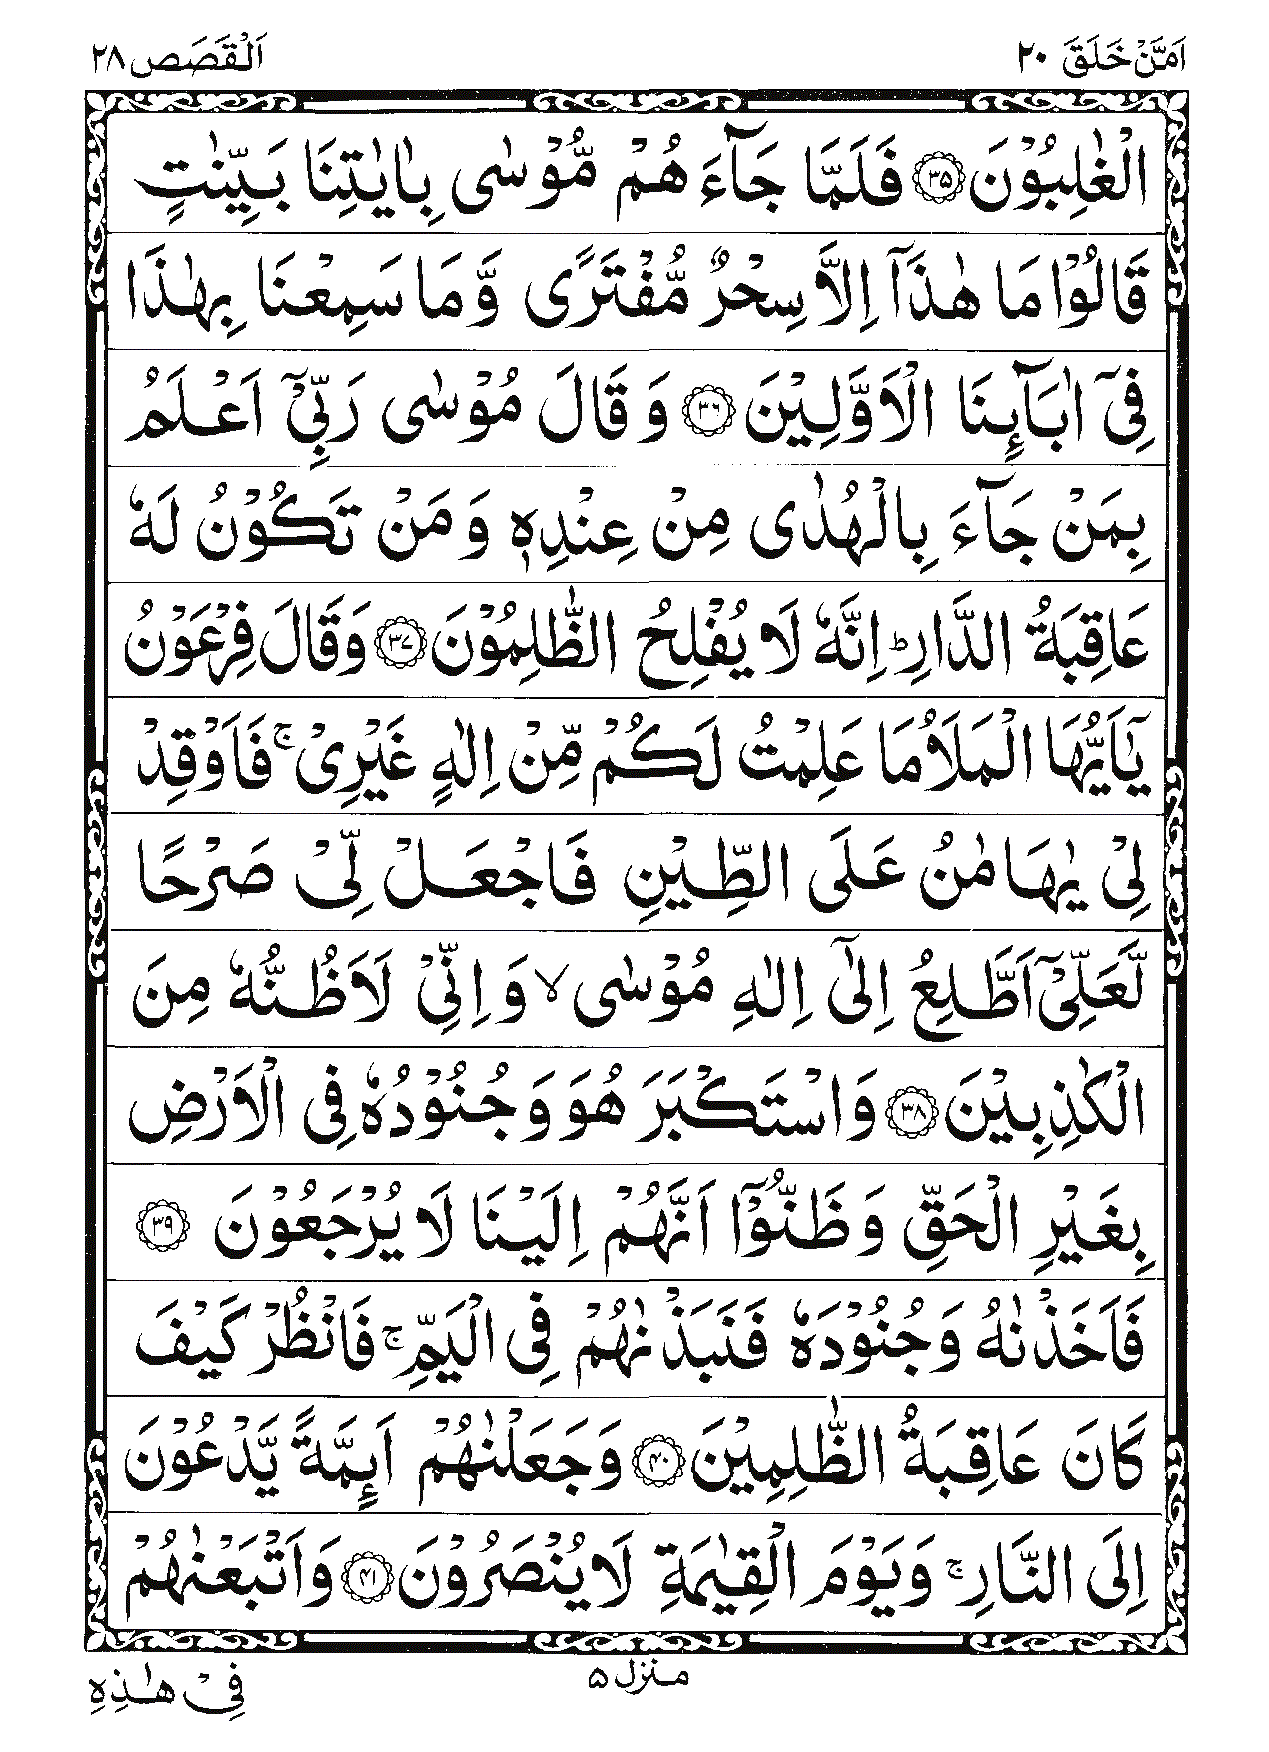 اَمَّنْ خَلَقَ ۲۰
اَلْقَصَص ۲۸
الْغٰلِبُوْنَ ۝۳۵ فَلَمَّا جَآءَ هُمْ مُّوْسٰى بِاٰيٰتِنَا بَيِّنٰتٍ
قَالُوْا مَا هٰذَآ اِلَّا سِحْرٌ مُّفْتَرًى وَّ مَا سَمِعْنَا بِهٰذَا
فِيْٓ اٰبَآئِنَا الْاَوَّلِيْنَ ۝۳۶ وَ قَالَ مُوْسٰى رَبِّيْٓ اَعْلَمُ
بِمَنْ جَآءَ بِالْهُدٰى مِنْ عِنْدِهٖ وَ مَنْ تَكُوْنُ لَهٗ
عَاقِبَةُ الدَّارِ ؕ اِنَّهٗ لَا يُفْلِحُ الظّٰلِمُوْنَ ۝۳۷ وَقَالَ فِرْعَوْنُ
يٰٓاَيُّهَا الْمَلَاُ مَا عَلِمْتُ لَكُمْ مِّنْ اِلٰهٍ غَيْرِيْ ۚ فَاَوْقِدْ
لِيْ يٰهَامٰنُ عَلَى الطِّيْنِ فَاجْعَلْ لِّيْ صَرْحًا
لَّعَلِّيْٓ اَطَّلِعُ اِلٰٓى اِلٰهِ مُوْسٰى ۙ وَ اِنِّيْ لَاَظُنُّهٗ مِنَ
الْكٰذِبِيْنَ ۝۳۸ وَاسْتَكْبَرَ هُوَ وَ جُنُوْدُهٗ فِى الْاَرْضِ
بِغَيْرِ الْحَقِّ وَ ظَنُّوْٓا اَنَّهُمْ اِلَيْنَا لَا يُرْجَعُوْنَ ۝۳۹
فَاَخَذْنٰهُ وَ جُنُوْدَهٗ فَنَبَذْنٰهُمْ فِى الْيَمِّ ۚ فَانْظُرْ كَيْفَ
كَانَ عَاقِبَةُ الظّٰلِمِيْنَ ۝۴۰ وَجَعَلْنٰهُمْ اَئِمَّةً يَّدْعُوْنَ
اِلَى النَّارِ ۚ وَيَوْمَ الْقِيٰمَةِ لَا يُنْصَرُوْنَ ۝۴۱ وَاَتْبَعْنٰهُمْ
منزل ۵
فِيْ هٰذِهِ